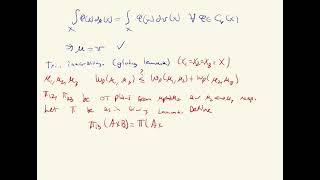 ∫_X φ(x)dμ(x) = ∫_X φ(x)dν(x) ∀ φ∈C_b(X)
⇒ μ = ν ✓
inequality (gluing lemma) (X_1=X_2=X_3=X)
μ_1, μ_2, μ_3 W_p(μ_1,μ_3) ≤ W_p(μ_1,μ_2) + W_p(μ_2,μ_3)
π_12, π_23 be OT plans from μ_2 resp.
Let π be as in lemma. Define
π_13(A×B) = π(A×